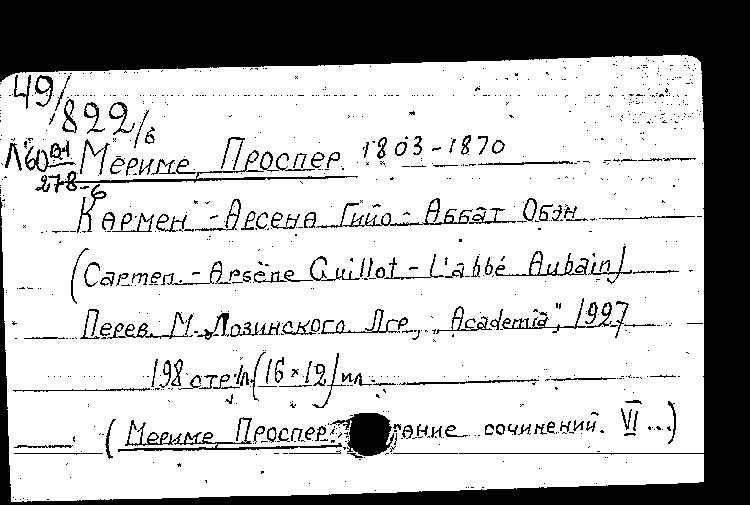 49/822/6
Л60
278-6
Мериме, Проспер. 1803-1870
Кармен - Арсена Гийо - Аббат Обэн
(Carmen. - Arsène Guillot - L'abbé Aubain)
Перев. М. Лозинского Лгр, „Academia", 1927
198 стр. (16×12) ил.
(Мериме, Проспер. ание сочинений. VI ...)